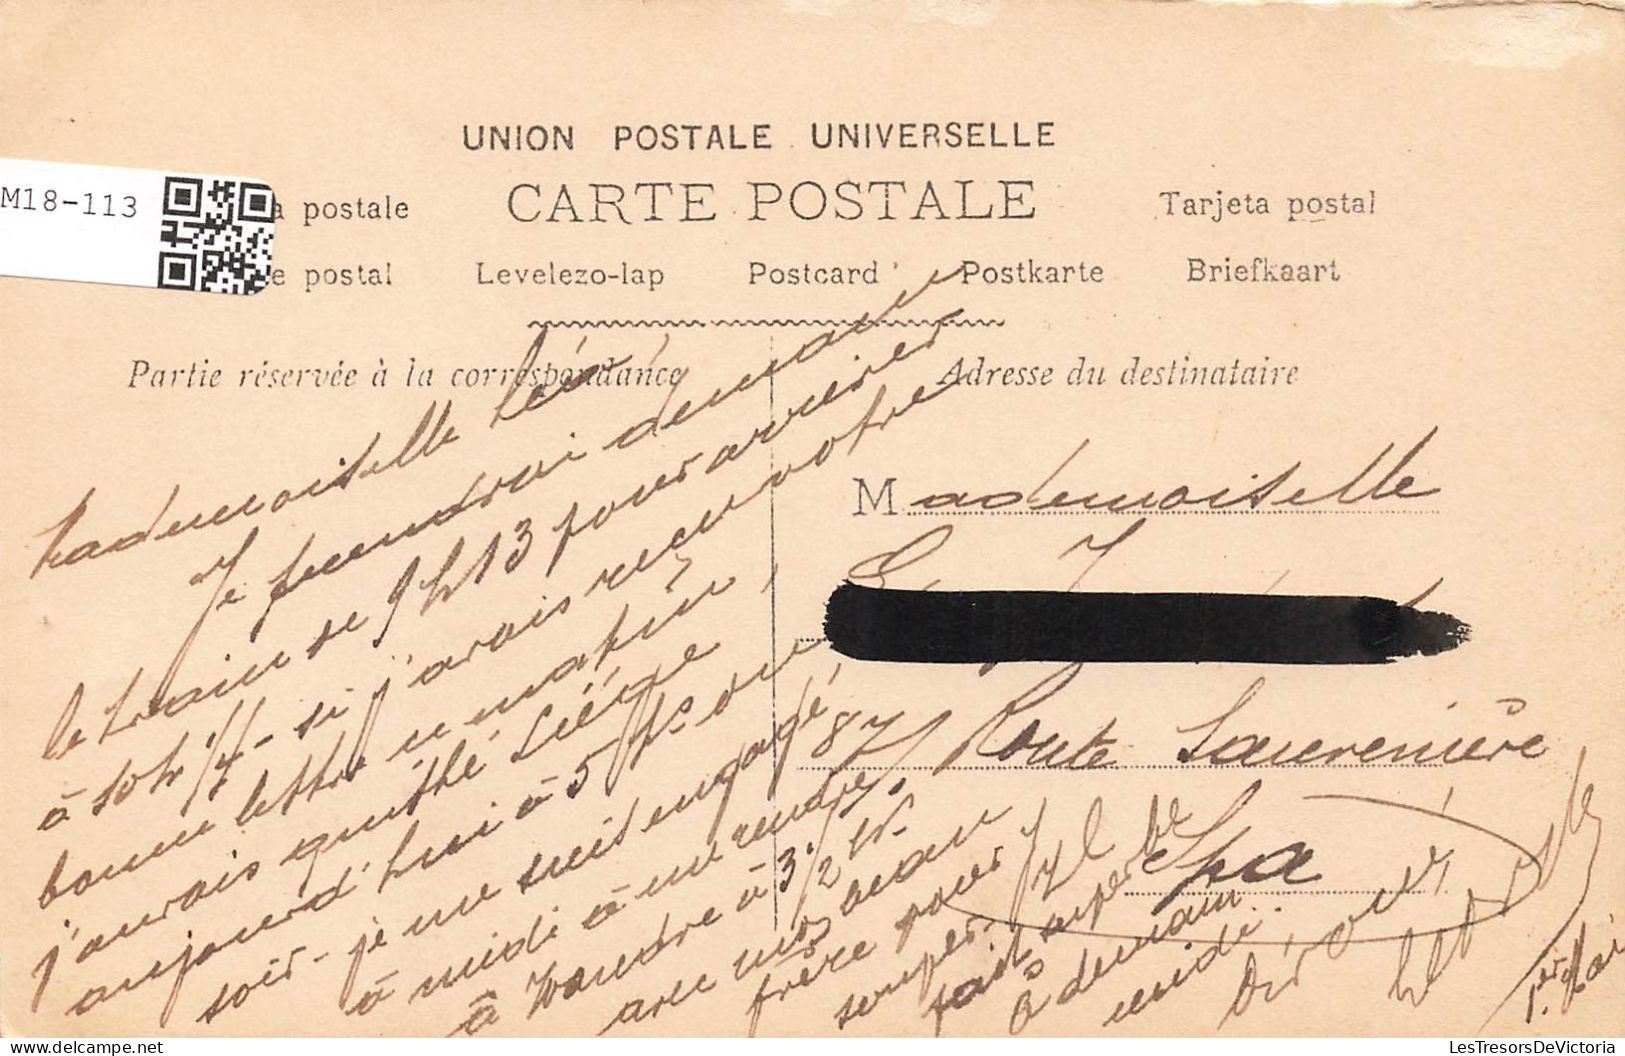 UNION POSTALE UNIVERSELLE
M18-113
a postale CARTE POSTALE Tarjeta postal
e postal Levelezo-lap Postcard Postkarte Briefkaart
Partie réservée à la correspondance
Adresse du destinataire
Mademoiselle Léa,
Je prendrai demain
le train de 9h13 pour arriver
à 10h 1/4 - si j'avais reçu votre
bonne lettre ce matin,
j'aurais quitté Liège
aujourd'hui à 5 hs du
soir - je me suis engagé,
à midi à me rendre
à Wandre à 3 1/2 hr
avec mon beau
frère pour
souper.
à demain
midi.
1er Mai
Mademoiselle
87 Route Sauvenière
Spa
LesTresorsDeVictoria.com